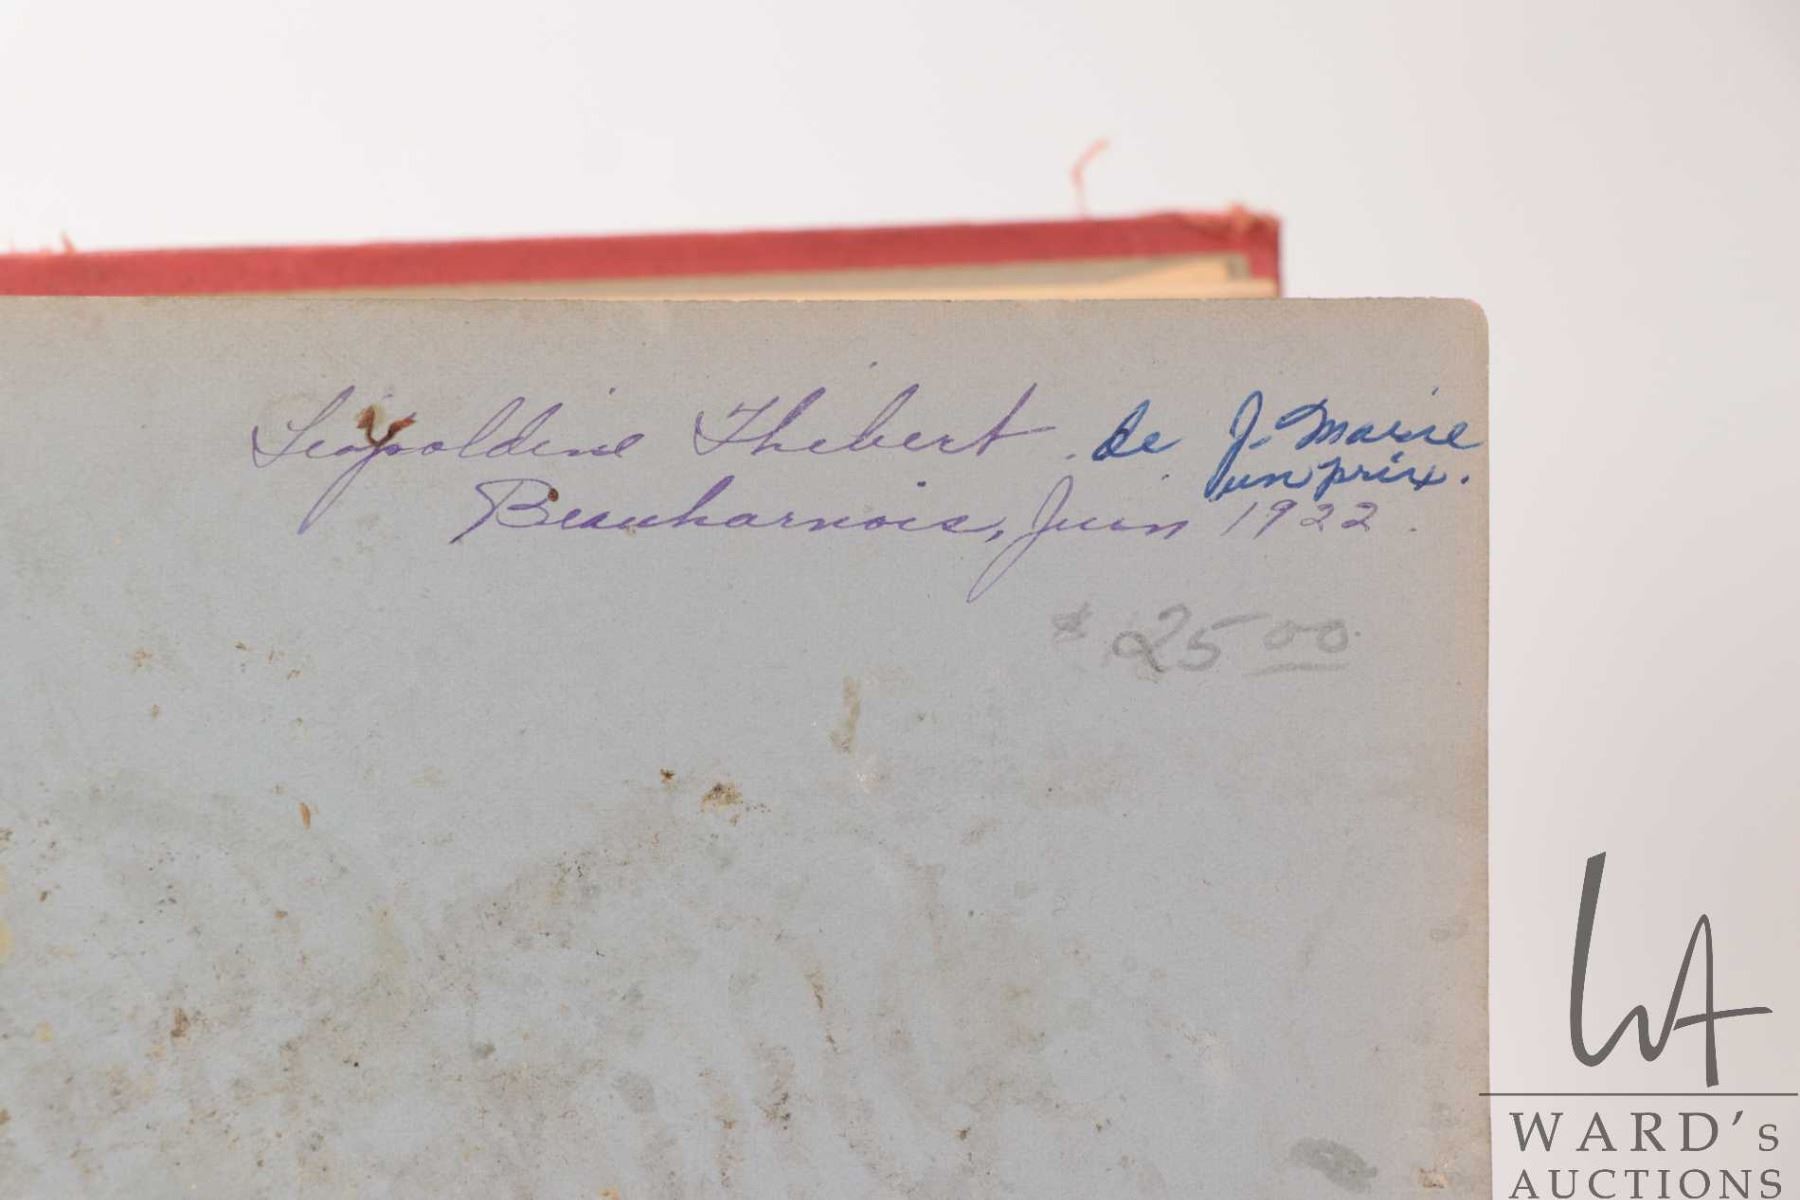 Léopoldine Thibert. de J. Marie
un prix.
Beauharnois, Juin 1922.
$ 25 00
WA
WARD's
AUCTIONS